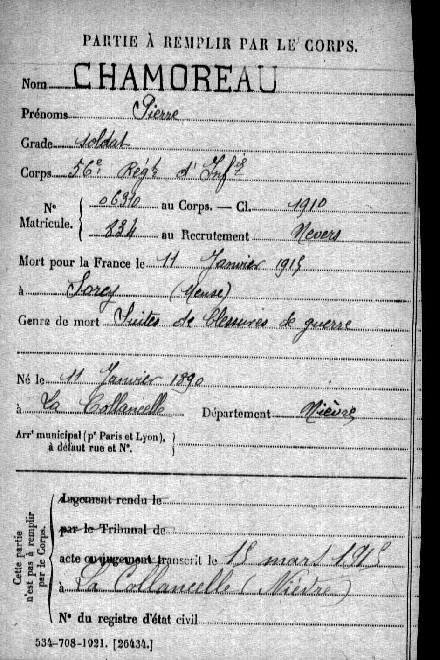 PARTIE À REMPLIR PAR LE CORPS.
Nom CHAMOREAU
Prénoms Pierre
Grade soldat
Corps 56e Régt d'Infie
N° Matricule. { 0630 au Corps. — Cl. 1910
834 au Recrutement Nevers
Mort pour la France le 11 Janvier 1915
à Sorcy (Meuse)
Genre de mort Suites de blessures de guerre
Né le 11 Janvier 1890
à La Collancelle Département Nièvre
Arrt municipal (pr Paris et Lyon), à défaut rue et N°. }
Cette partie n'est pas à remplir par le Corps.
Jugement rendu le
par le Tribunal de
acte ou jugement transcrit le mars
à La Collancelle (Nièvre)
N° du registre d'état civil
534-708-1921. [26434.]